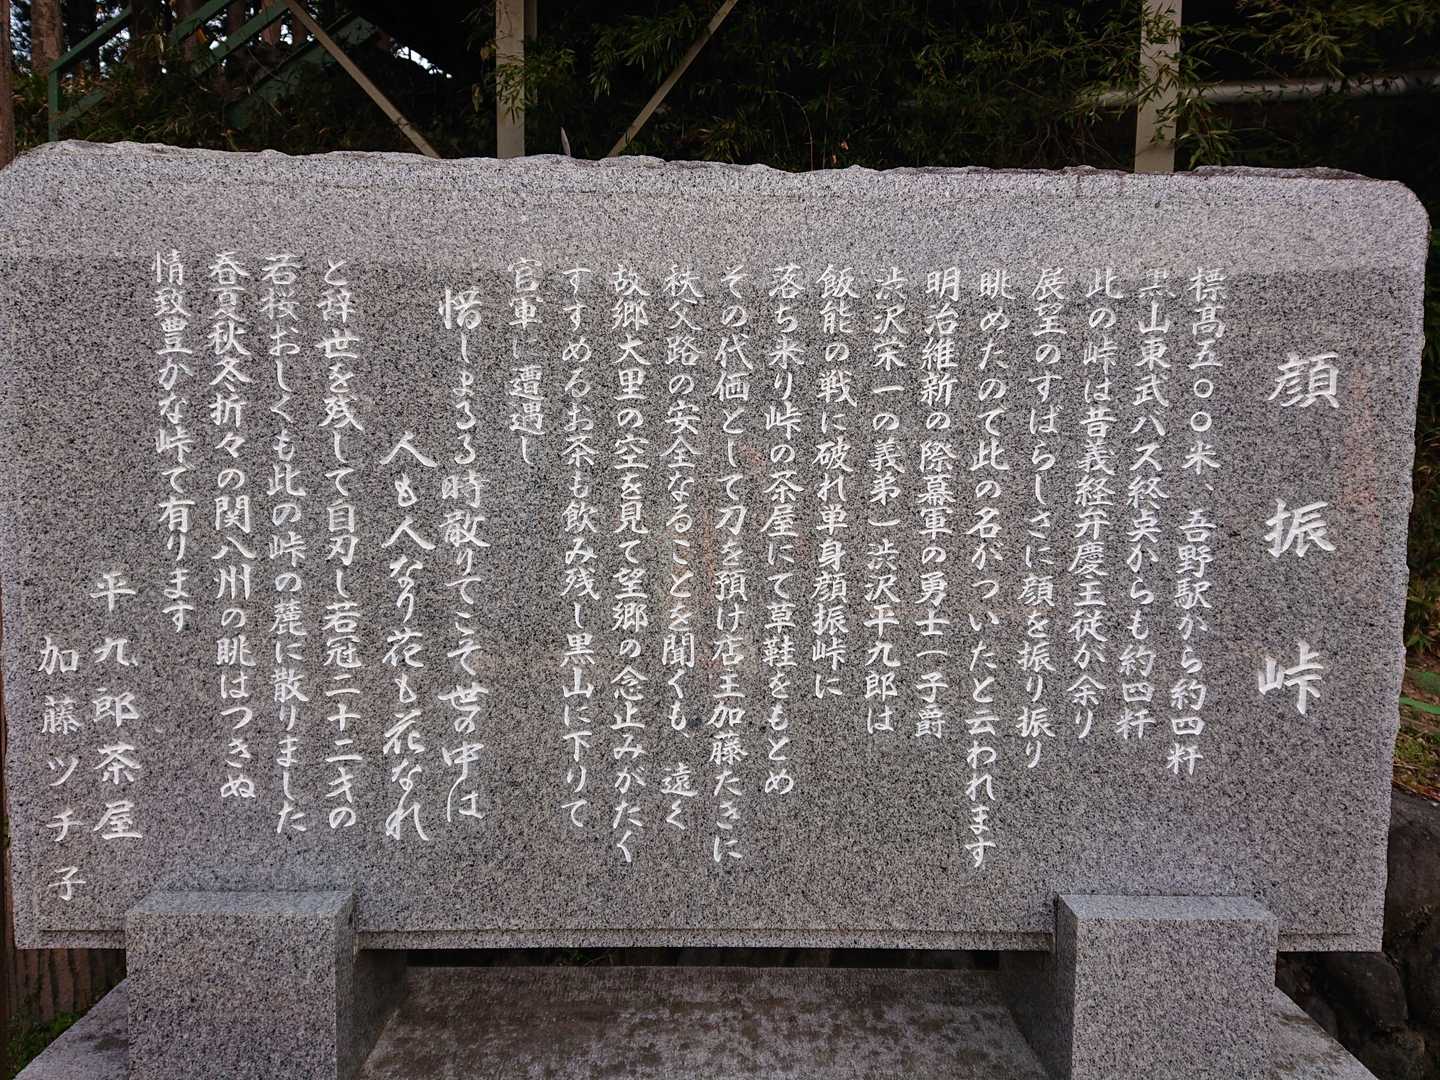 顔振峠
標高五〇〇米、吾野駅から約四粁
黒山東武バス終点からも約四粁
此の峠は昔義経弁慶主従が余り
展望のすばらしさに顔を振り振り
眺めたので此の名がついたと云われます
明治維新の際幕軍の勇士(子爵
渋沢栄一の義弟)渋沢平九郎は
飯能の戦に破れ単身顔振峠に
落ち来り峠の茶屋にて草鞋をもとめ
その代価として刀を預け店主加藤たきに
秩父路の安全なることを聞くも、遠く
故郷大里の空を見て望郷の念止みがたく
すすめるお茶も飲み残し黒山に下りて
官軍に遭遇し
惜しまるる時散りてこそ世の中は
人も人なり花も花なれ
と辞世を残して自刃し若冠二十二才の
若桜おしくも此の峠の麓に散りました
春夏秋冬折々の関八州の眺はつきぬ
情致豊かな峠で有ります
平九郎茶屋
加藤ツチ子